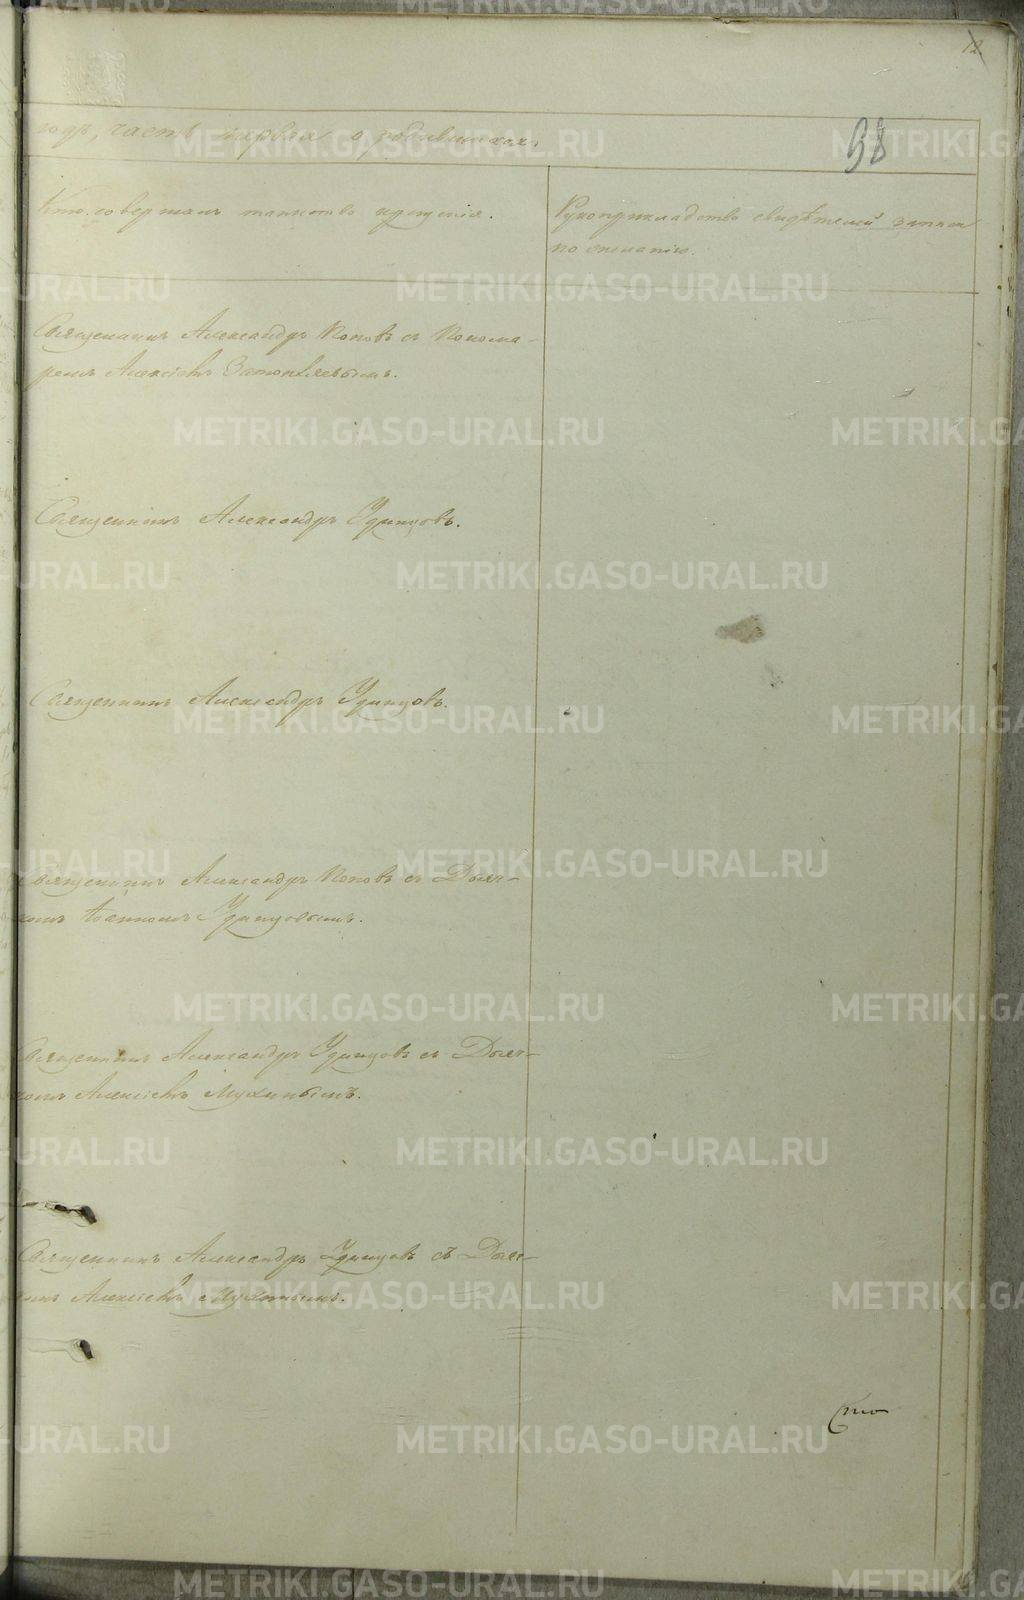 12
98
годъ, часть первая о родившихся.
Кто совершалъ таинство крещенія.
Рукоприкладство свидѣтелей записи
по желанію.
Священникъ Александръ Поповъ съ Понома-
ремъ Алексіемъ
Священникъ Александръ Удинцовъ.
Священникъ Александръ Удинцовъ.
Священникъ Александръ Поповъ съ Дьяч-
комъ Іоанномъ Удинцовымъ.
Священникъ Александръ Удинцовъ съ Дьяч-
комъ Алексіемъ Мухинымъ.
Священникъ Александръ Удинцовъ съ Дьяч-
комъ Алексіемъ Мухинымъ.
METRIKI.GASO-URAL.RU